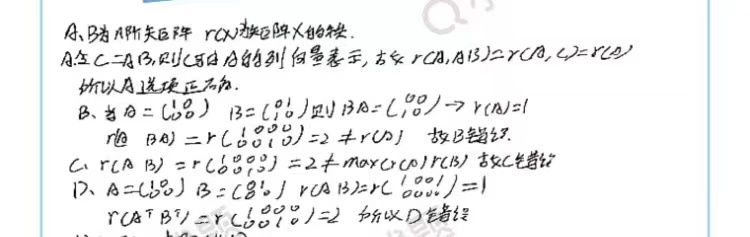 A、B为n阶矩阵 r(X)为矩阵X的秩.
A令C=AB,则C可由A的列向量表示,故r(A,AB)=r(A,C)=r(A)
所以A选项正确.
B、当A=(1 0 0 0) B=(0 1 1 0)则BA=(0 0 1 0)→r(A)=1
r(A BA)=r(1 0 0 0 0 0 1 0)=2≠r(A) 故B错误.
C、r(A B)=r(1 0 0 0 0 0)=2≠max(r(A) r(B)) 故C错误
D、A=(1 0 0 0) B=(0 1 0 0) r(A B)=r(1 0 0 1 0 0 0 0)=1
r(Aᵀ Bᵀ)=r(1 0 0 0 0 0 1 0)=2 所以D错误